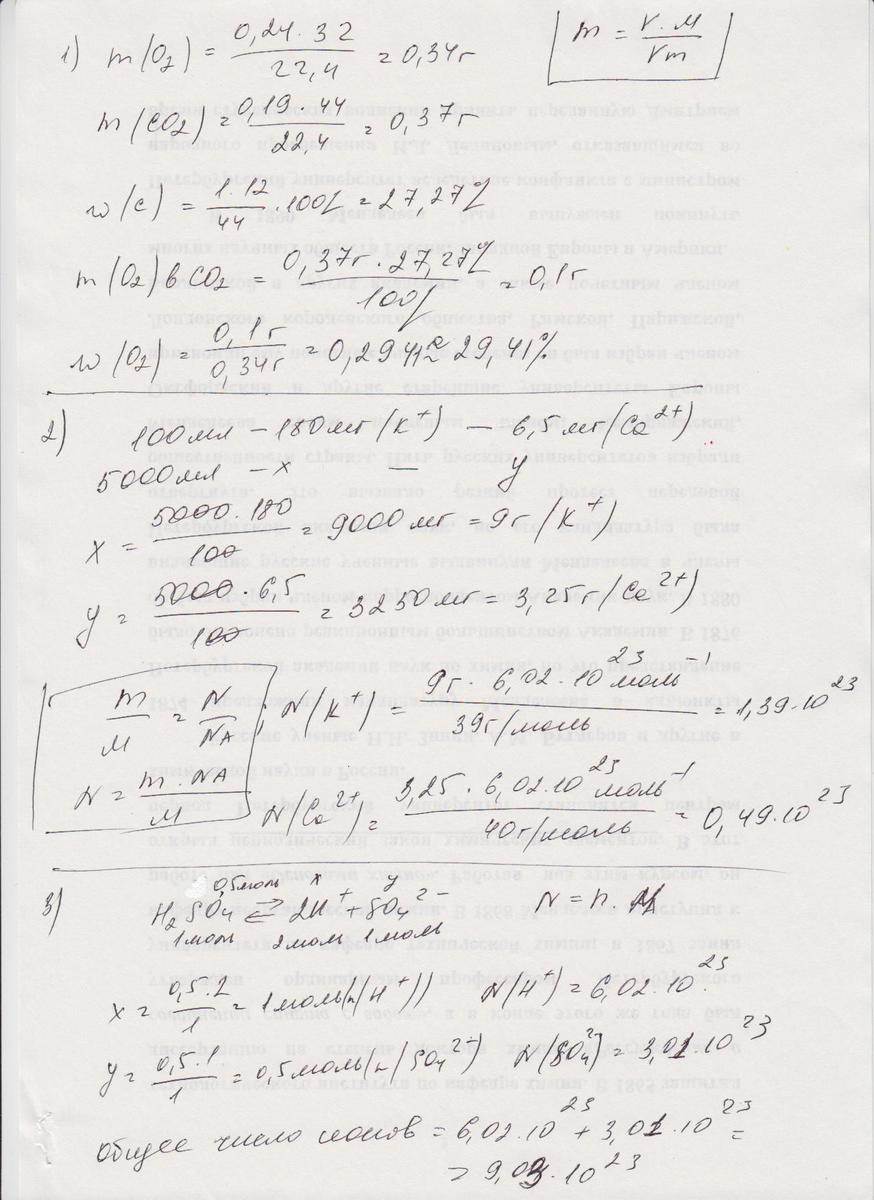 1) m(O2) = 0,24 · 32 / 22,4 = 0,34г
m = V · M / Vm
m(CO2) = 0,19 · 44 / 22,4 = 0,37г
w(C) = 1 · 12 / 44 · 100% = 27,27%
m(O2) в CO2 = 0,37г · 27,27% / 100% = 0,1г
w(O2) = 0,1г / 0,34г = 0,2941 ≈ 29,41%
2) 100мл – 180мг(K⁺) – 6,5мг(Ca²⁺)
5000мл – x – y
x = 5000 · 180 / 100 = 9000мг = 9г(K⁺)
y = 5000 · 6,5 / 100 = 3250мг = 3,25г(Ca²⁺)
m / M = N / NA ; N(K⁺) = 9г · 6,02 · 10²³ моль⁻¹ / 39г/моль = 1,39 · 10²³
N = m · NA / M
N(Ca²⁺) = 3,25 · 6,02 · 10²³ моль⁻¹ / 40г/моль = 0,49 · 10²³
0,5моль x y
3) H2SO4 ⇄ 2H⁺ + SO4²⁻ N = n · NA
1моль 2моль 1моль
x = 0,5 · 2 / 1 = 1моль(n(H⁺)) N(H⁺) = 6,02 · 10²³
y = 0,5 · 1 / 1 = 0,5моль(n(SO4²⁻) N(SO4²⁻) = 3,01 · 10²³
общее число ионов = 6,02 · 10²³ + 3,01 · 10²³ =
= 9,03 · 10²³